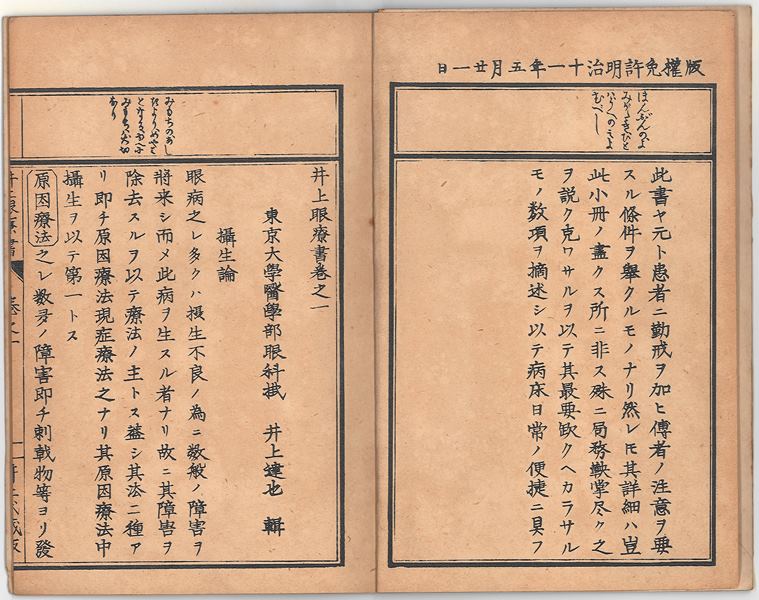 版權免許明治十一年五月廿一日
ほんぶんのよ
みがたきひと
むべし
此書ヤ元ト患者ニ勤戒ヲ加ヒ傅者ノ注意ヲ要
スル條件ヲ舉クルモノナリ然レ𪜈其詳細ハ豈
此小冊ノ盡クス所ニ非ス殊ニ局務鞅掌尽ク之
ヲ説ク克ワサルヲ以テ其最要欽クヘカラサル
モノ数項ヲ摘述シ以テ病床日常ノ便捷ニ具フ
井上眼療書巻之一
東京大學醫學部眼科掛 井上達也 輯
攝生論
眼病之レ多クハ摂生不良ノ為ニ数般ノ障害ヲ
將来シ而メ此病ヲ生スル者ナリ故ニ其障害ヲ
除去スルヲ以テ療法ノ主トス蓋シ其法二種ア
リ即チ原因療法現症療法之ナリ其原因療法中
攝生ヲ以テ第一トス
原因療法之レ数多ノ障害即チ刺戟物等ヨリ發